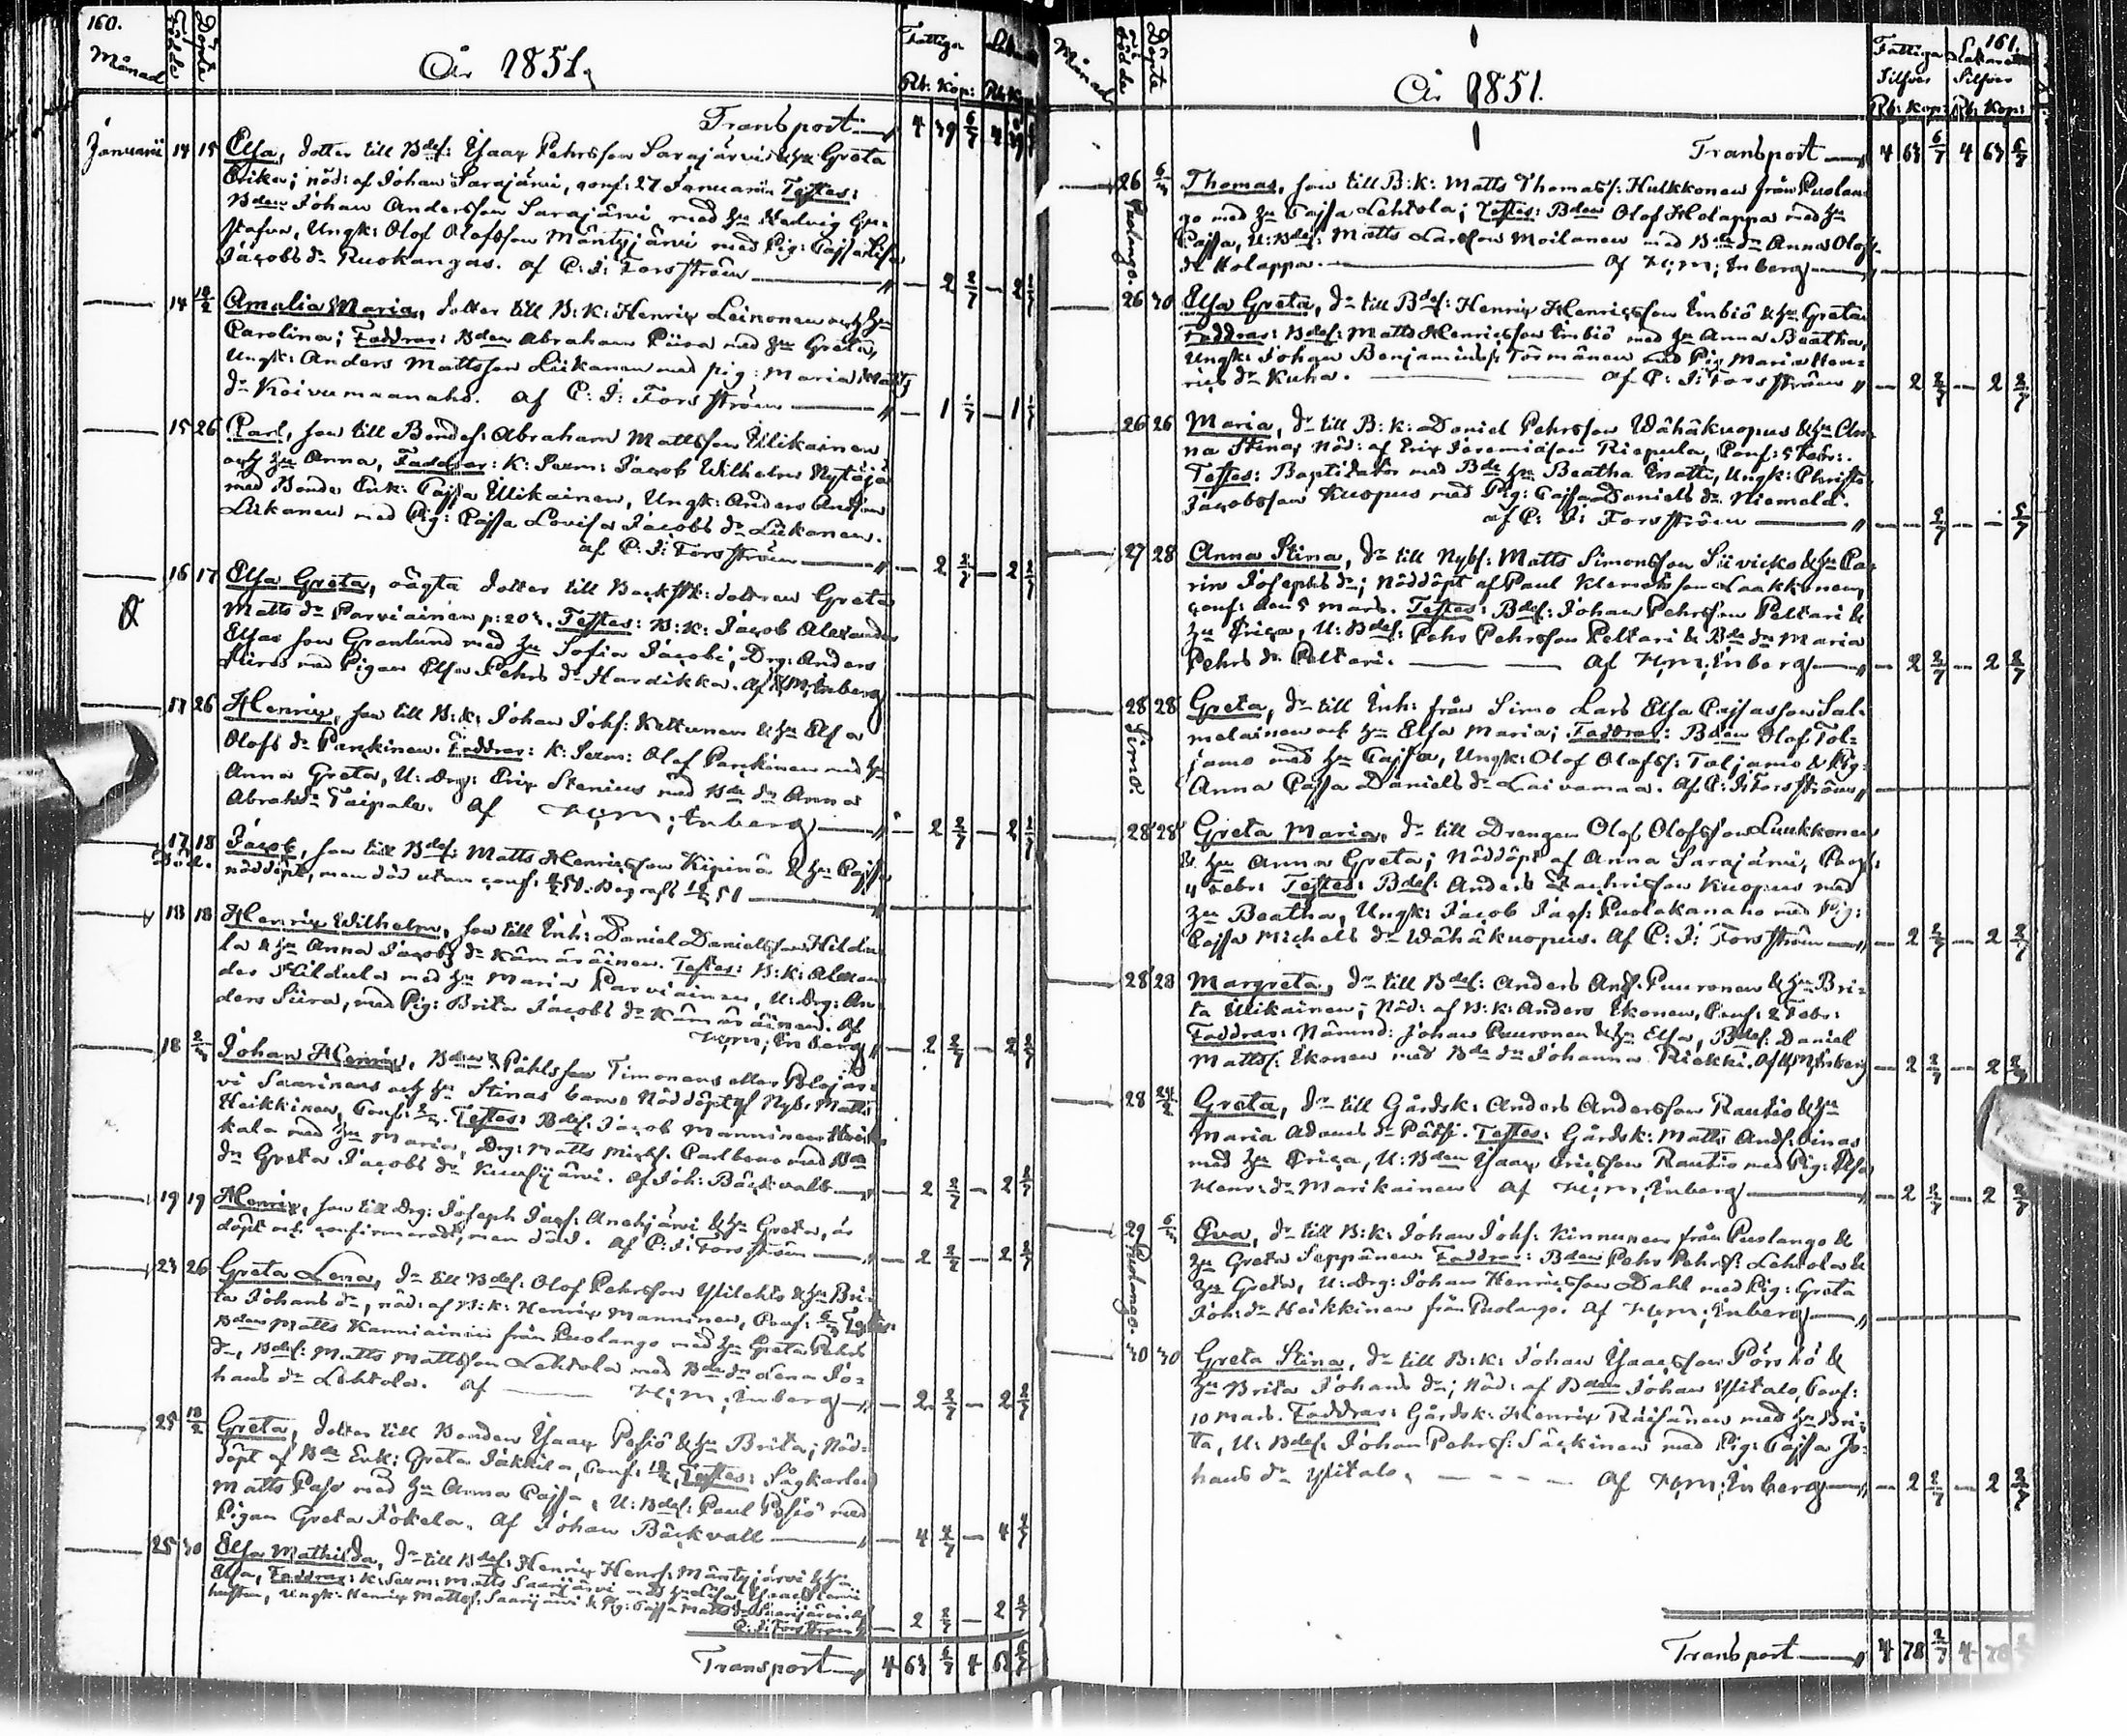 160.
Månad
Födde
Döpte
År 1851.
Fattiga
Rb: Kop: Rb: Kop:
Transport 4 39 6/7 4 39
Januarii 14 15 Elsa, dotter till Bdes: Isaac Pehrsson Sarajärvi & hu Greta
Erika; nöd: af Johan Sarajärvi, conf: 27 Januarii Testes:
Bden Johan Andersson Sarajärvi med hu Hedvig Gu-
stafva, Ungk: Olof Olofsson Mäntyjärvi med Pig: Cajsa Lisa
Jacobs dr Ruokangas. af C: J: Forsström 2 2/7 2
14 Amalia Maria, dotter till B: K: Henric Leinonen och hu
Carolina; Faddrar: Bden Abraham Piira med hu Greta,
Ungk: Anders Mattsson Liikanen med pig: Maria Matts
dr Koivumaanaho. af C: J: Forsström 1 1/7 1
15 26 Carl, son till Bondes: Abraham Mattsson Ulikainen
och hu Anna, Faddrar: K: Sexm: Jacob Wilhelm Nytäjä
med Bonde Enk: Cajsa Ulikainen, Ungk: Anders Andsson
Liikanen med Pig: Cajsa Lovisa Jacobs dr Liikanen.
af C: J: Forsström 2 2/7 2 2/7
16 17 Elsa Greta, oägta dotter till Backstk: dottren Greta
Matts dr Parviainen p: 20 . Testes: B: K: Jacob Alexander
Elias son Granlund med hu Sofia Jacobi, Drg: Anders
med Pigan Elsa Pehrs dr Hardikka. af H: M: Enberg
17 26 Henric, son till B: K: Johan Johs: Kettunen & hu Elsa
Olofs dr Parckinen. Faddrar: K: Sexm: Olof Parckinen med hu
Anna Greta, U: Drg: Eric Stenius med Bde dr Anna
Abrah: dr Taipale. Af H: M: Enberg 2 2/7 2 2/7
17 18 Jacob, son till Bdes: Matts Henricsson Kipinä & hu Cajsa
Död. nöddöpt, men död utan conf:
18 18 Henric Wilhelm, son till Inh: Daniel Danielsson Hildu-
la & hu Anna Jacobs dr Kämäräinen. Testes: B: K: Alexan
der Hildula med hu Maria Parviainen, U: Drg: An-
ders Siira, med Pig: Brita Jacobs dr Kämäräinen. Af
H: M: Enberg 2 2/7 2 2/7
18 Johan Henric, Bden Påhlsson Timonens eller Polojär-
vi Saarinens och hu Stinas barn: Nöddöpt af Nyb: Matts
Heikkinen, Conf: Testes: Bdes: Jacob Manninen
kala med hu Maria, Drg: Matts Michs: Carlbom med Bde
dr Greta Jacobs dr Kuusijärvi. Af Joh: Bäckvall 2 2/7 2 2/7
19 19 Henric, son till Drg: Joseph Jacs: Anehjärvi & hu Greta, är
döpt och confirmerad, men död. af C: J: Forsström 2 2/7 2 2/7
23 26 Greta Lena, dr till Bdes: Olof Pehrsson Ylilehto & hu Bri-
ta Johans dr, nöd: af B: K: Henric Manninen, Conf: Testes:
Bden Matts Kanniainen från Puolango med hu Greta Pehrs
dr, Bdes: Matts Mattsson Lehtola med Bde dr Lena Jo-
hans dr Lehtola. Af H: M: Enberg 2 2/7 2 2/7
25 Greta, dotter till Bonden Isaac Posiö & hu Brita; Nöd-
döpt af Bde Enk: Greta Jäkkilä, Conf: Testes: Sågkarlen
Matts Paso med hu Anna Cajsa, U: Bdes: Paul Posiö med
Pigan Greta Jokela. Af Johan Bäckvall 4 4/7 4 4/7
25 30 Elsa Mathilda, dr till Bdes: Henric Henrs: Mäntyjärvi & hu
Elsa, Faddrar: K: Sexm: Matts Saarijärvi med hu Elisa,
hustru, Ungk: Henric Mattss: Saarijärvi & Pig: Cajsa Matts dr Saarijärvi. af
C: J: Forsström 2 2/7 2 2/7
Transport 4 63 6/7 4 63 6/7
161.
Månad
Födde
Döpte
År 1851.
Fattiga Lazarett
Silfver Silfver
Rb: Kop: Rb: Kop:
Transport 4 63 6/7 4 63 6/7
26 Puolango. Thomas, son till B: K: Matts Thomass: Hulkkonen från Puolan
go med hu Cajsa Lehtola; Testes: Bden Olof Holappa med hu
Cajsa, U: Bdes: Matts Larsson Moilanen med Bde dr Anna Olofs
dr Holappa. Af H: M: Enberg
26 30 Elsa Greta, dr till Bdes: Henric Henricsson Embiö & hu Greta
Faddrar: Bdes: Matts Henricsson Embiö med hu Anna Beatha,
Ungk: Johan Benjamins: Törmänen med Pig: Maria Hen-
rics dr Kuha. af C: J: Forsström 2 2/7 2 2/7
26 26 Maria, dr till B: K: Daniel Pehrsson Wähäkuopus & hu An-
na Stina; Nöd: af Eric Jeremiason Riepula, Conf: 5 Febr:.
Testes: Baptisator med Bde hu Beatha Matti, Ungk: Christo:
Jacobsson Kuopus med Pig: Cajsa Daniels dr Niemelä.
af C: J: Forsström
27 28 Anna Stina, dr till Nybs: Matts Simonsson Siivicko & hu Ca-
rin Josephs dr; Nöddöpt af Paul Klemetsson Laakkonen,
conf: den 5 Mars. Testes: Bdes: Johan Pehrsson Peltari &
hu Erica, U: Bdes: Pehr Pehrsson Peltari & Bde dr Maria
Pehrs dr Peltari. Af H: M: Enberg 2 2/7 2 2/7
28 28 Simo. Greta, dr till Inh: från Simo Lars Elsa Cajsasson Sal-
melainen och hu Elsa Maria; Faddrar: Bden Olof Tol-
jamo med hu Cajsa, Ungk: Olof Olofss: Toljamo & Pig:
Anna Cajsa Daniels dr Laivamaa. Af C: J: Forsström
28 28 Greta Maria, dr till Drengen Olof Olofsson Luukkonen
& hu Anna Greta; Nöddöpt af Anna Sarajärvi, Conf:
4 Febr: Testes: Bdes: Anders Zachrisson Kuopus med
hu Beatha, Ungk: Jacob Jacs: Puolakanaho med Pig:
Cajsa Michels dr Wähäkuopus. Af C: J: Forsström 2 2/7 2 2/7
28 28 Margreta, dr till Bdes: Anders Ands: Puuronen & hu Bri-
ta Ulikainen; Nöd: af B: K: Anders Ekonen, Conf: 2 Febr:
Faddrar: Nämnd: Johan Puuronen & hu Elsa, Bdes: Daniel
Mattss: Ekonen med Bde dr Johanna Riekki. Af H: M: Enberg 2 2/7 2 2/7
28 24/2 Greta, dr till Gårdsk: Anders Andersson Rautio & hu
Maria Adams dr Pätsi. Testes: Gårdsk: Matts Ands: Oinas
med hu Erica, U: Bden Isaac Ericsson Rautio med Pig: Elsa
Henr: dr Marikainen. Af H: M: Enberg 2 2/7 2 2/7
29 Puolango. Eva, dr till B: K: Johan Johs: Kinnunen från Puolango &
hu Greta Seppänen. Faddrar: Bden Pehr Pehrs: Lehtola &
hu Greta, U: Drg: Johan Henricsson Dahl med Pig: Greta
Joh: dr Heikkinen från Puolango. Af H: M: Enberg
30 30 Greta Stina, dr till B: K: Johan Isaacsson Pörhö &
hu Brita Johans dr; Nöd: af Bden Johan Ylitalo, Conf:
10 Mars. Faddrar: Gårdsk: Henric Räisänen med hu Bri-
ta, U: Bdes: Johan Pehrs: Särkinen med Pig: Cajsa Jo-
hans dr Ylitalo. Af H: M: Enberg 2 2/7 2 2/7
Transport 4 78 2/7 4 78